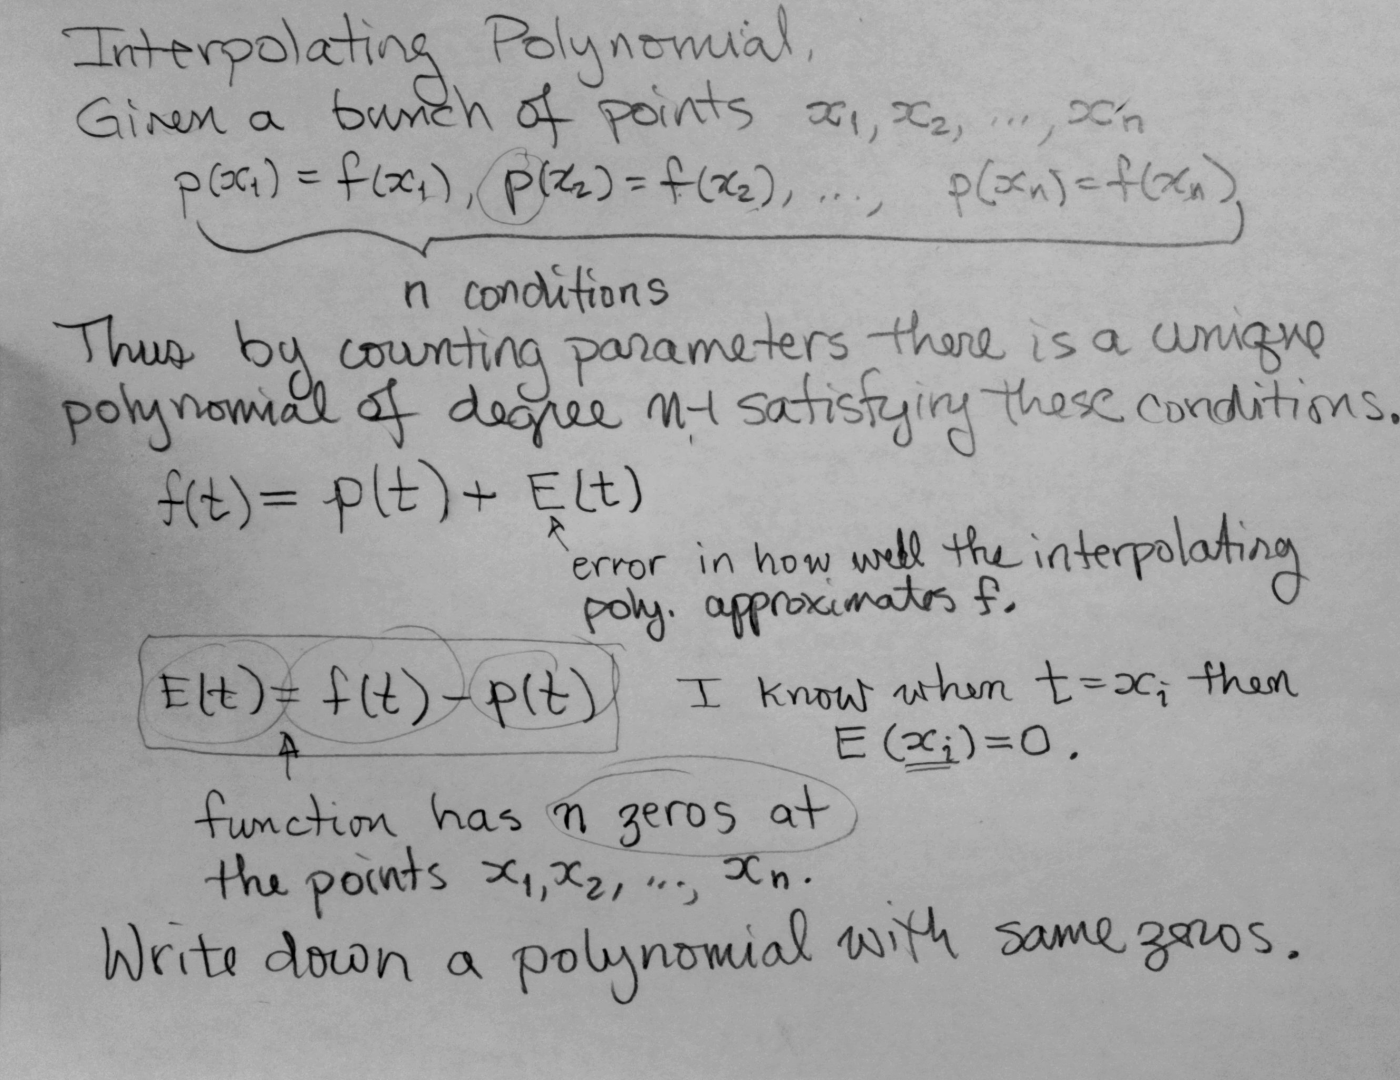 Interpolating Polynomial.
Given a bunch of points x₁, x₂, ..., xₙ
p(x₁) = f(x₁), p(x₂) = f(x₂), ..., p(xₙ) = f(xₙ)
n conditions
Thus by counting parameters there is a unique
polynomial of degree n-1 satisfying these conditions.
f(t) = p(t) + E(t)
error in how well the interpolating
poly. approximates f.
E(t) = f(t) - p(t) I know when t = xᵢ then
E(xᵢ) = 0.
function has n zeros at
the points x₁, x₂, ..., xₙ.
Write down a polynomial with same zeros.